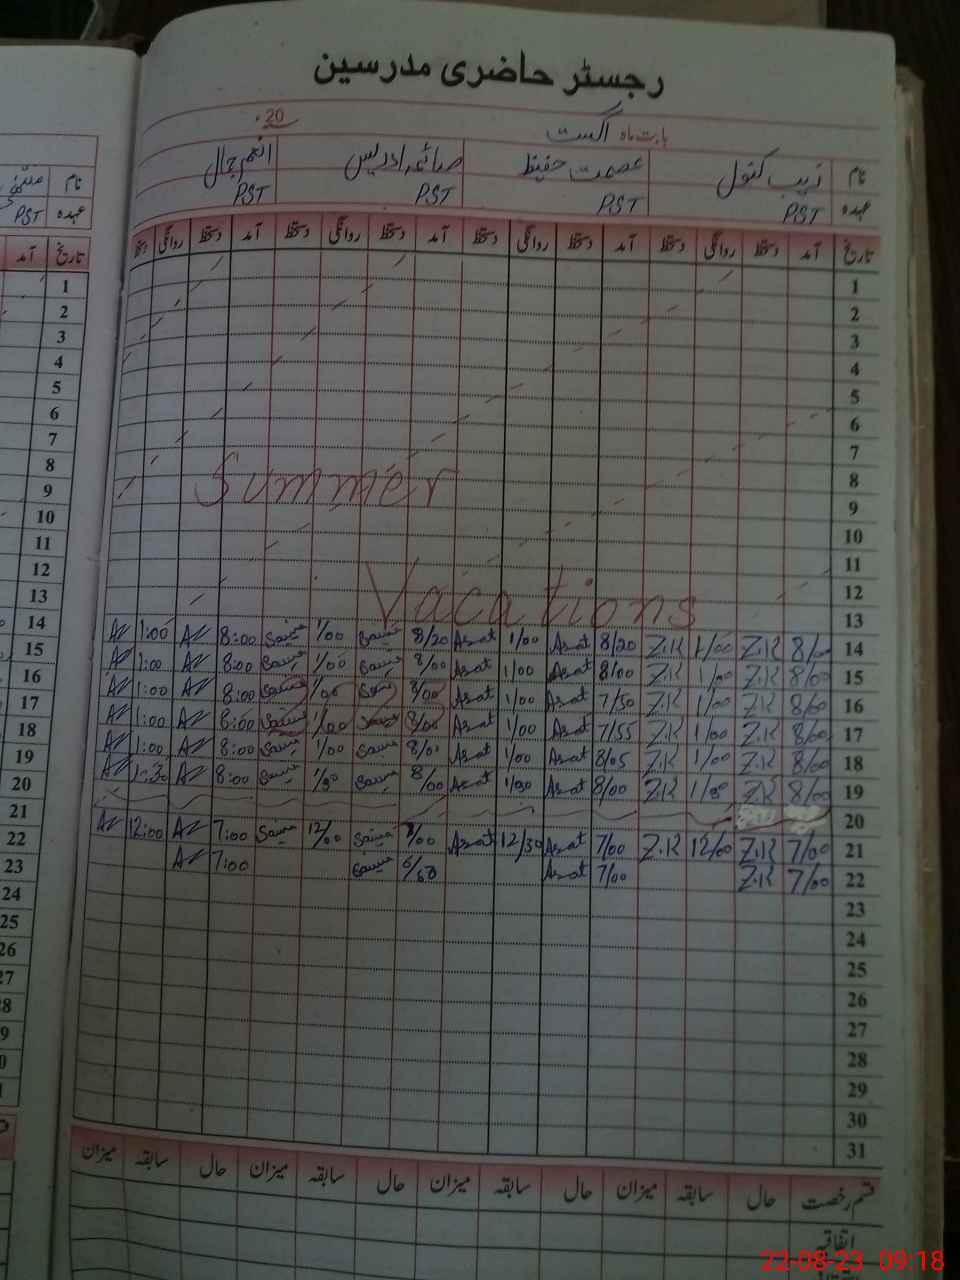 رجسٹر حاضری مدرسین
بابت ماہ اگست 20ء
نام زیب کنول عصمت حفیظ صائمہ ادریس
عہدہ PST PST PST PST
تاریخ آمد دستخط روانگی دستخط آمد دستخط روانگی دستخط آمد دستخط روانگی دستخط آمد دستخط روانگی دستخط
1
2
3
4
5
6
7
8
Summer
9
10
11
12
Vacations
13
14 8/00 Z.K 1/00 Z.K 8/20 Asmat 1/00 Asmat 8/20 Saima 1/00 Saima 8:00 AZ 1:00 AZ
15 8/00 Z.K 1/00 Z.K 8/00 Asmat 1/00 Asmat 8/00 Saima 1/00 Saima 8:00 AZ 1:00 AZ
16 8/00 Z.K 1/00 Z.K 7/50 Asmat 1/00 Asmat 8/00 Saima 1/00 Saima 8:00 AZ 1:00 AZ
17 8/00 Z.K 1/00 Z.K 7/55 Asmat 1/00 Asmat 8/00 Saima 1/00 Saima 8:00 AZ 1:00 AZ
18 8/00 Z.K 1/00 Z.K 8/05 Asmat 1/00 Asmat 8/00 Saima 1/00 Saima 8:00 AZ 1:00 AZ
19 8/00 Z.K 1/30 Z.K 8/00 Asmat 1/30 Asmat 8/00 Saima 1/30 Saima 8:00 AZ 1:30 AZ
20
21 7/00 Z.K 12/00 Z.K 7/00 Asmat 12/30 Asmat Saima 12/00 Saima 7:00 AZ 12:00 AZ
22 7/00 Z.K 7/00 Asmat Saima 7:00 AZ
23
24
25
26
27
28
29
30
31
قسم رخصت حال سابقہ میزان حال سابقہ میزان حال سابقہ میزان حال سابقہ میزان
اتفاقیہ
نام
عہدہ PST
تاریخ آمد
1
2
3
4
5
6
7
8
9
10
11
12
13
14
15
16
17
18
19
20
21
22
23
24
25
26
27
22-08-23 09:18